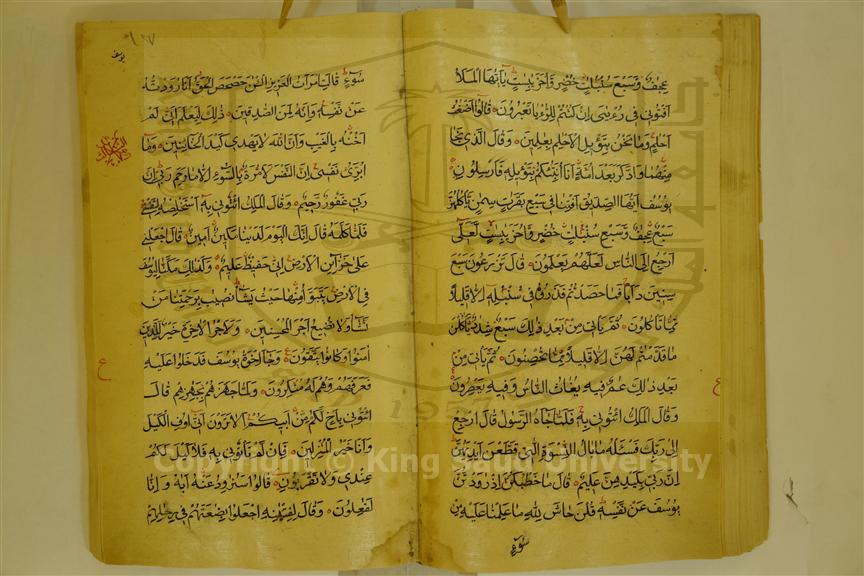 عجاف وسبع سنبلت خضر واخر يبست يايها الملا
افتوني في رءيي ان كنتم للرءيا تعبرون قالوا اضغث
احلم وما نحن بتاويل الاحلم بعلمين وقال الذي نجا
منهما وادكر بعد امة انا انبئكم بتاويله فارسلون
يوسف ايها الصديق افتنا في سبع بقرت سمن ياكلهن
سبع عجاف وسبع سنبلت خضر واخر يبست لعلي
ارجع الي الناس لعلهم يعلمون قال تزرعون سبع
سنين دابا فما حصدتم فذروه في سنبله الا قليلا
مما تاكلون ثم ياتي من بعد ذلك سبع شداد ياكلن
ما قدمتم لهن الا قليلا مما تحصنون ثم ياتي من
بعد ذلك عام فيه يغاث الناس وفيه يعصرون
وقال الملك ائتوني به فلما جاءه الرسول قال ارجع
الي ربك فسئله ما بال النسوة التي قطعن ايديهن
ان ربي بكيدهن عليم قال ما خطبكن اذ رودتن
يوسف عن نفسه قلن حاش لله ما علمنا عليه من
سوء
يوسف
سوء قالت امرات العزيز الن حصحص الحق انا رودته
عن نفسه وانه لمن الصدقين ذلك ليعلم اني لم
اخنه بالغيب وان الله لا يهدي كيد الخائنين وما
ابرئ نفسي ان النفس لامارة بالسوء الا ما رحم ربي ان
ربي غفور رحيم وقال الملك ائتوني به استخلصه لنفسي
فلما كلمه قال انك اليوم لدينا مكين امين قال اجعلني
علي خزائن الارض اني حفيظ عليم وكذلك مكنا ليوسف
في الارض يتبوا منها حيث يشاء نصيب برحمتنا من
نشاء ولا نضيع اجر المحسنين ولاجر الاخرة خير للذين
امنوا وكانوا يتقون وجاء اخوة يوسف فدخلوا عليه
فعرفهم وهم له منكرون ولما جهزهم بجهازهم قال
ائتوني باخ لكم من ابيكم الا ترون اني اوف الكيل
وانا خير المنزلين فان لم تاتوني به فلا كيل لكم
عندي ولا تقربون قالوا سنرود عنه اباه وانا
لفعلون وقال لفتينه اجعلوا بضعتهم في رحالهم
ع
ع
Copyright © King Saud University